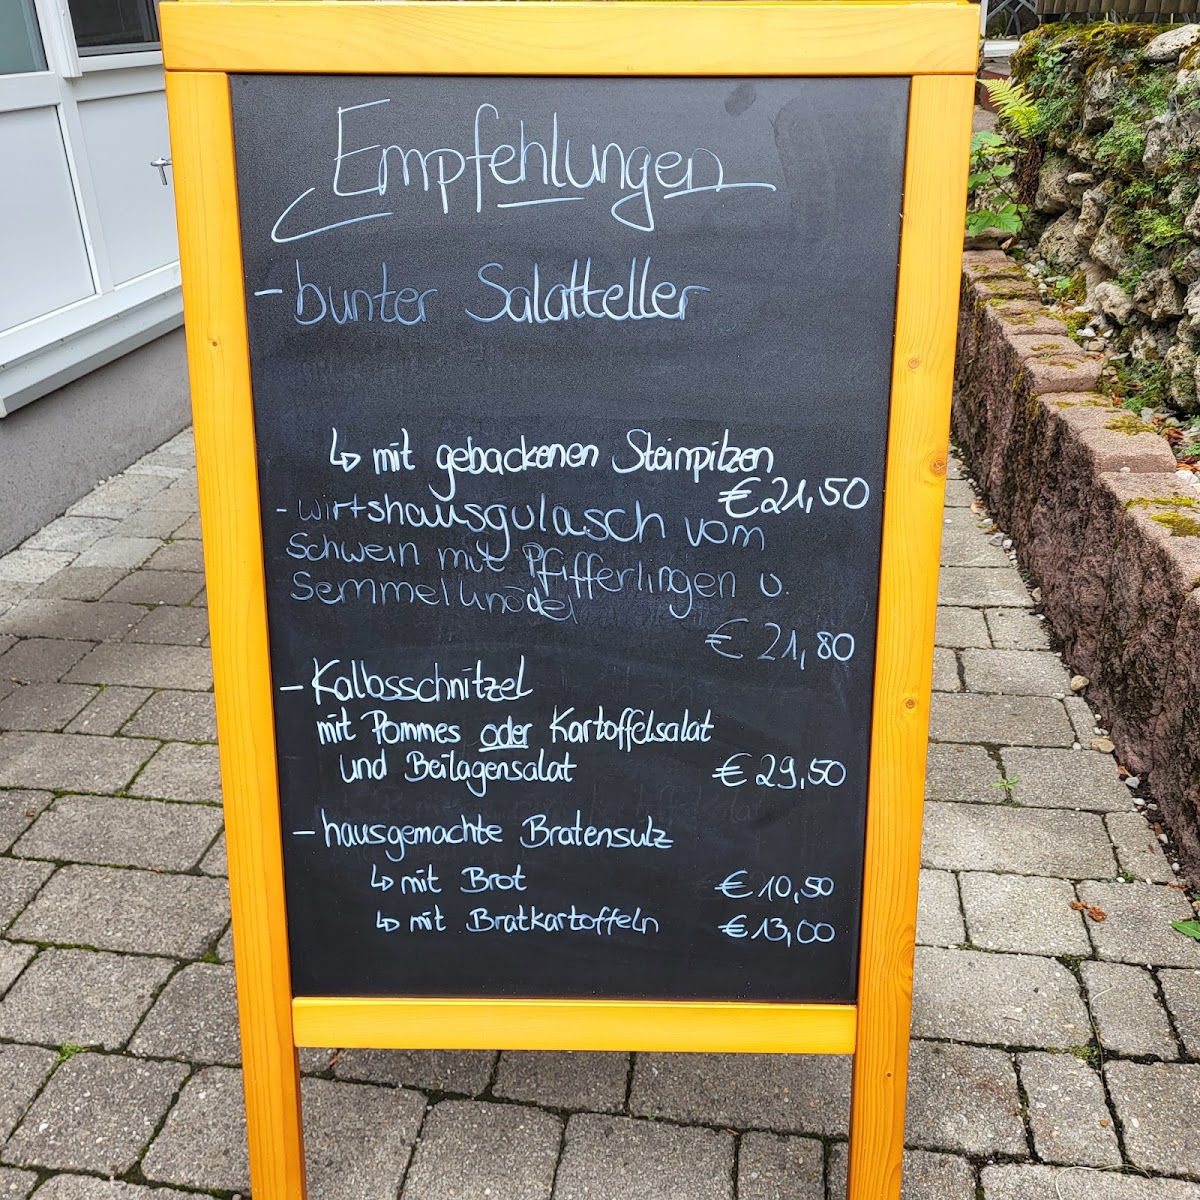 Empfehlungen
- bunter Salatteller
↳ mit gebackenen Steinpilzen
€ 21,50
- Wirtshausgulasch vom
Schwein mit Pfifferlingen u.
Semmelknödel
€ 21,80
- Kalbsschnitzel
mit Pommes oder Kartoffelsalat
und Beilagensalat € 29,50
- hausgemachte Bratensulz
↳ mit Brot € 10,50
↳ mit Bratkartoffeln € 13,00